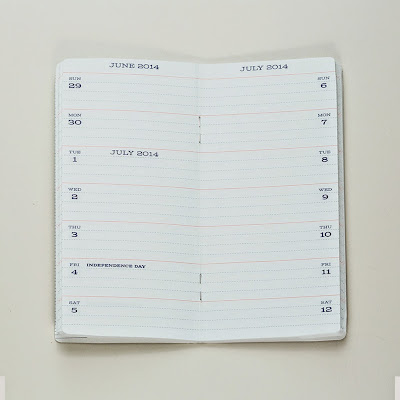 JUNE 2014
SUN
29
MON
30
TUE
1
JULY 2014
WED
2
THU
3
FRI
4 INDEPENDENCE DAY
SAT
5
JULY 2014
SUN
6
MON
7
TUE
8
WED
9
THU
10
FRI
11
SAT
12